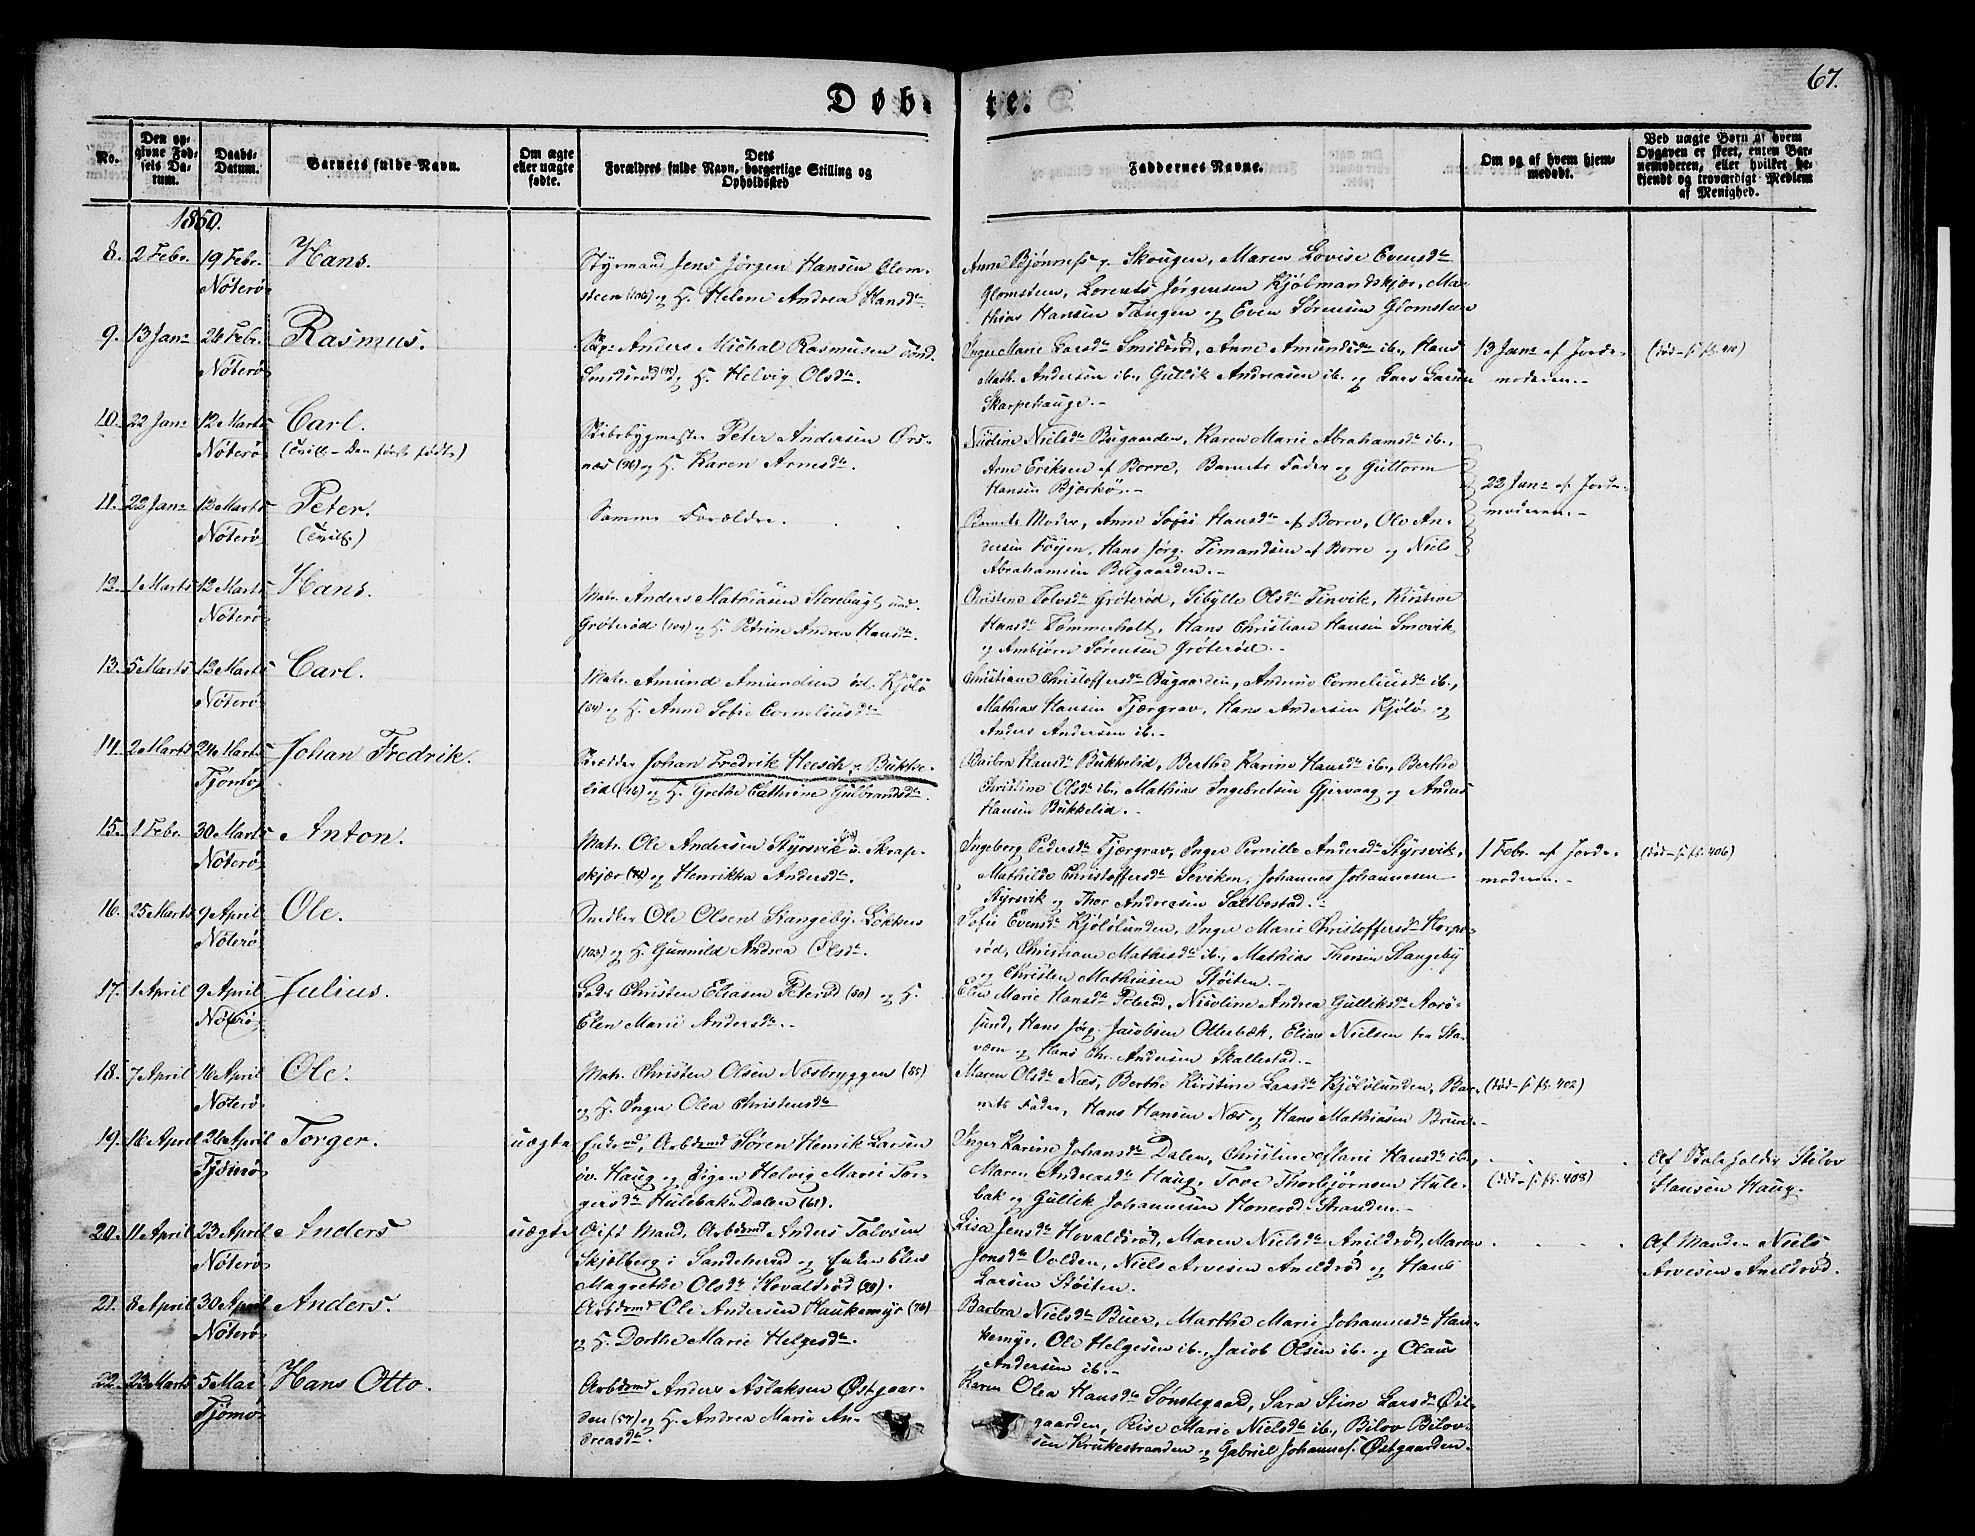 67.
Døbte.
No.
Den opgivne Fødsels Datum.
Daabs-Datum.
Barnets fulde Navn.
Om ægte eller uægte fødte.
Forældres fulde Navn, Dets borgerlige Stilling og Opholdssted
Faddernes Navne.
Om og af hvem hjemmedøbt.
Ved uægte Børn af hvem Opgaven er skeet, enten Barnemoderen, eller hvilket bekjendt og troværdigt Medlem af Menighed.
1850.
8. 2 Febr. 19 Febr. Nöterö Hans.
Styrmand Jens Jörgen Hansen Glomsteen (106) og H. Helene Andrea Hansdtr
Anne Bjönness v. Skougen, Maren Lovise Evensdtr
Glomsteen, Lorents Jörgensen Kjöbmandskjær, Ma-
thias Hansen Tangen og Even Sörensen Glomsteen
9. 13 Janr 24 Febr. Nöterö Rasmus.
Anders Michal Rasmusen sönd.
Smidsröd og H. Helvig Olsdtr.
Inger Marie Larsdtr Smidsröd, Anne Amundsdtr ib., Hans
Math. Andersen ib., Gullik Andreasen ib. og Lars Larsen
Skarpehauge.-
13 Janr af Jorde-
moderen.-
10. 22 Janr 12 Marts Nöterö Carl.
(Tvill.- Den förste födte)
Skibsbygmester Peter Andersen Örs-
næs (96) og H. Karen Arnesdtr.
Nielsdtr Bugaarden, Karen Marie Abrahamsdtr ib.,
Arne Eriksen af Borre, Barnets Fader og Guttorm
Hansen Bjerkö.-
22 Janr af Jorde-
moderen.-
11. 22 Janr 12 Marts Nöterö Peter.
(Tvill.)
Samme Forældre.
Barnets Moder, Anne Sofie Hansdtr af Borre, Ole An-
dersen Föyen, Hans Jörg. Timandsen af Borre og Niels
Abrahamsen Bugaarden.-
12. 1 Marts 12 Marts Nöterö Hans.
Matr. Anders Mathiasen Storebugt und.
Gröteröd (104) og H. Petrine Andrea Hansdtr.
Christine Tolvsdtr Gröteröd, Sibylle Olsdtr Tinvik, Kirstine
Hansdtr Tömmerholt, Hans Christian Hansen Smovik
og Ambjörn Sörensen Gröteröd.-
13. 5 Marts 12 Marts Nöterö Carl.
Matr. Amund Amundsen öst. Kjölö
(84) og H. Anne Sofie Corneliusdtr
Christiane Christoffersdtr Bugaarden, Andrine Corneliusdtr ib.,
Mathias Hansen Tjærgrav, Hans Andersen Kjölö og
Anders Andersen ib.-
14. 2 Marts 24 Marts Tjömö Johan Fredrik.
Skredder Johan Fredrik Heesch, v. Bukke-
lid og H. Grethe Cathrine Gulbrandsdtr.
Barbra Hansdtr Bukkelid, Berthe Karine Hansdtr ib., Berthe
Christine Olsdtr ib., Mathias Ingebretsen Gjervaag og Anders
Hansen Bukkelid.-
15. 1 Febr. 30 Marts Nöterö Anton.
Matr. Ole Andersen Styrsvik u. Skrap-
skjær og Henrikka Andersdtr.
Ingeborg Pedersdtr Tjærgrav, Inger Pernille Andersdtr Styrsvik,
Mathilde Christoffersdtr Seviken, Johannes Johannesen
Styrsvik og Thor Andreasen Saltbostad.-
1 Febr. af Jorde-
moderen.-
(död - s. fl. 406)
16. 25 Marts 9 April Nöterö Ole.
Snedker Ole Olsen Stangeby-Lökken
(103) og H. Gunnild Andrea Olsdtr.
Sofie Evensdtr Kjölölunden, Inger Marie Christoffersdtr Horpe-
röd, Christiane Mathisdtr ib., Mathias Thorsen Stangeby
og Christen Mathiasen Stöiten.-
17. 1 April 9 April Nöterö Julius.
Lods Christen Eliasen Peteröd (80) og H.
Elen Marie Andersdtr.-
Elen Marie Hansdtr Peteröd, Nicoline Andrea Gulliksdtr Aarö-
sund, Hans Jörg. Jacobsen Otterbæk, Elias Nielsen fra Sta-
værn og Hans Chr. Andersen Skallestad.-
18. 7 April 16 April Nöterö Ole.
Matr. Christen Olsen Næsbryggen (85)
og H. Inger Olea Christensdtr
Maren Olsdtr Næs, Berthe Kirstine Larsdtr Kjölölunden, Bar-
nets Fader, Hans Hansen Næs og Hans Mathiasen Bruu.-
(död - s. fl. 402)
19. 16 April 26 April Tjömö Torger. uægte
Enkemd, Arbdsmd Sören Henrik Larsen
öv. Haug og Pigen Helvig Marie Tor-
gersdtr Hulebak-Dalen (61).
Inger Karine Johansdtr Dalen, Christine Marie Hansdtr ib.,
Maren Andreasdtr Haug, Tove Thorbjörnsen Hule-
bak og Gullik Johannesen Honeröd-Stranden.-
(död - s. fl. 408)
Af Bolsfolder Stilov
Hansen Haug.
20. 11 April 23 April Nöterö Anders uægte
Gift Mand, Arbdsmd Anders Tolvsen
Skjölberg i Sandeherred og Enken Elen
Magrethe Olsdtr Hovaldsröd.
Lisa Jensdtr Hovaldsröd, Maren Nielsdtr Anildröd, Maren
Jonsdtr Volden, Niels Arvesen Anildröd og Hans
Larsen Stöiten.
Af Manden Niels
Arvesen Anildröd.
21. 8 April 30 April Nöterö Anders.
Arbdsmd Ole Andersen Haukemyr (76)
og H. Dorthe Marie Helgesdtr.
Barbra Nielsdtr Buer, Marthe Marie Johannesdtr Hau-
kemyr, Ole Helgesen ib., Jacob Olsen ib. og Claus
Andersen ib.-
22. 23 Marts 5 Mai Tjömö Hans Otto.
Arbdsmd Anders Aslaksen Östgaar-
den (57) og H. Andrea Marie An-
dreasdtr.
Karen Olea Hansdtr Sönstegaard, Sara Stine Larsdtr Öst-
gaarden, Elise Marie Nielsdtr ib., Bilov Bilov-
sen Krukestranden og Gabriel Johannes. Östgaarden.